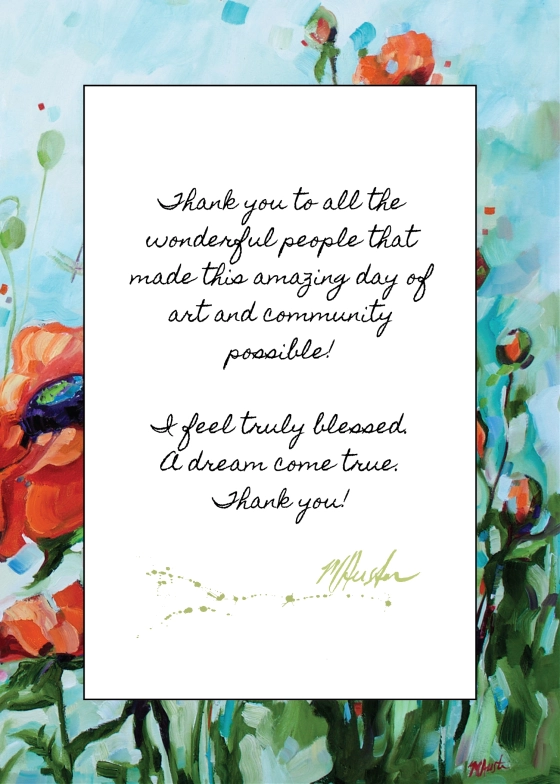 Thank you to all the
wonderful people that
made this amazing day of
art and community
possible!
I feel truly blessed.
A dream come true.
Thank you!